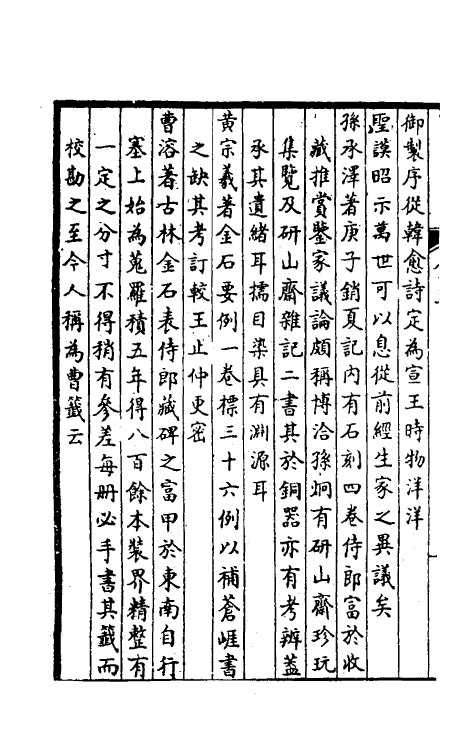 御製序從韓愈詩定為宣王時物洋洋
聖謨昭示萬世可以息從前經生家之異議矣
孫承澤著庚子銷夏記内有石刻四卷侍郎富於收
藏推賞鑒家議論頗稱博洽孫炯有研山齋珍玩
集覽及研山齋雜記二書其於銅器亦有考辨蓋
承其遺緒耳擩目染具有淵源耳
黄宗羲著金石要例一卷標三十六例以補蒼崖書
之缺其考訂較王止仲更密
曹溶著古林金石表侍郎藏碑之富甲於東南自行
塞上始為蒐羅積五年得八百餘本裝界精整有
一定之分寸不得稍有參差每册必手書其籤而
校勘之至今人稱為曹籤云